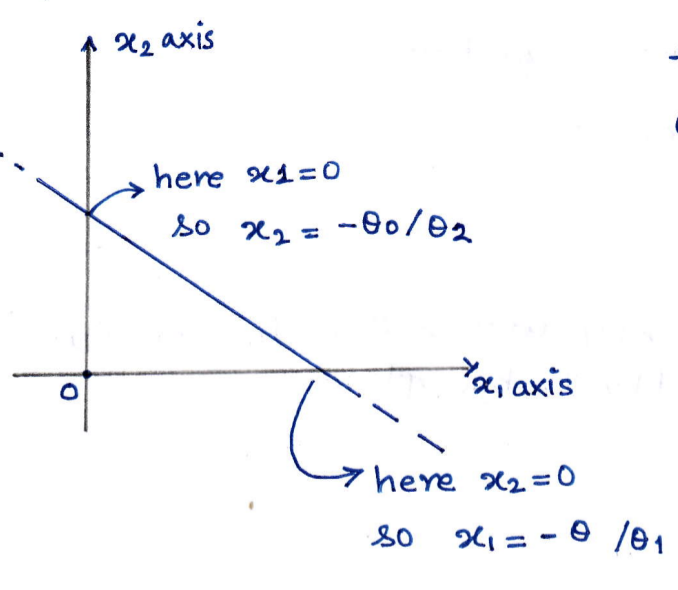 x₂ axis
here x1=0
so x₂ = -θ0/θ2
0
x₁ axis
here x₂=0
so x₁ = - θ /θ1